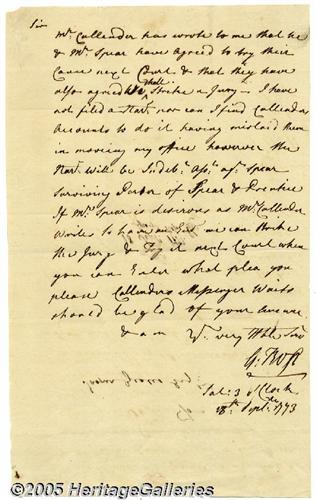 Sir
Mr. Callender has wrote to me that he
& Mr. Spear have Agreed to try their
Cause next Court & that they have
also agreed We shall Strike a Jury — I have
not filed a Narr. nor can I find Callender
Accounts to do it having mislaid them
in moving my office however the
Narr. will be Indeb. Ass. agt. Spear
surviving Partner of Spear & Prentice
If Mr. Spear is desirous as Mr. Callender
Writes to have an End we can Strike
the Jury & Try it next Court when
you can Enter what plea you
please Callenders Messenger Waits
should be glad of your Answer
& am Yr. very Hble Serv
G. Ross
Sat: 3 o'Clock
18th. Sept. 1773
©2005 HeritageGalleries